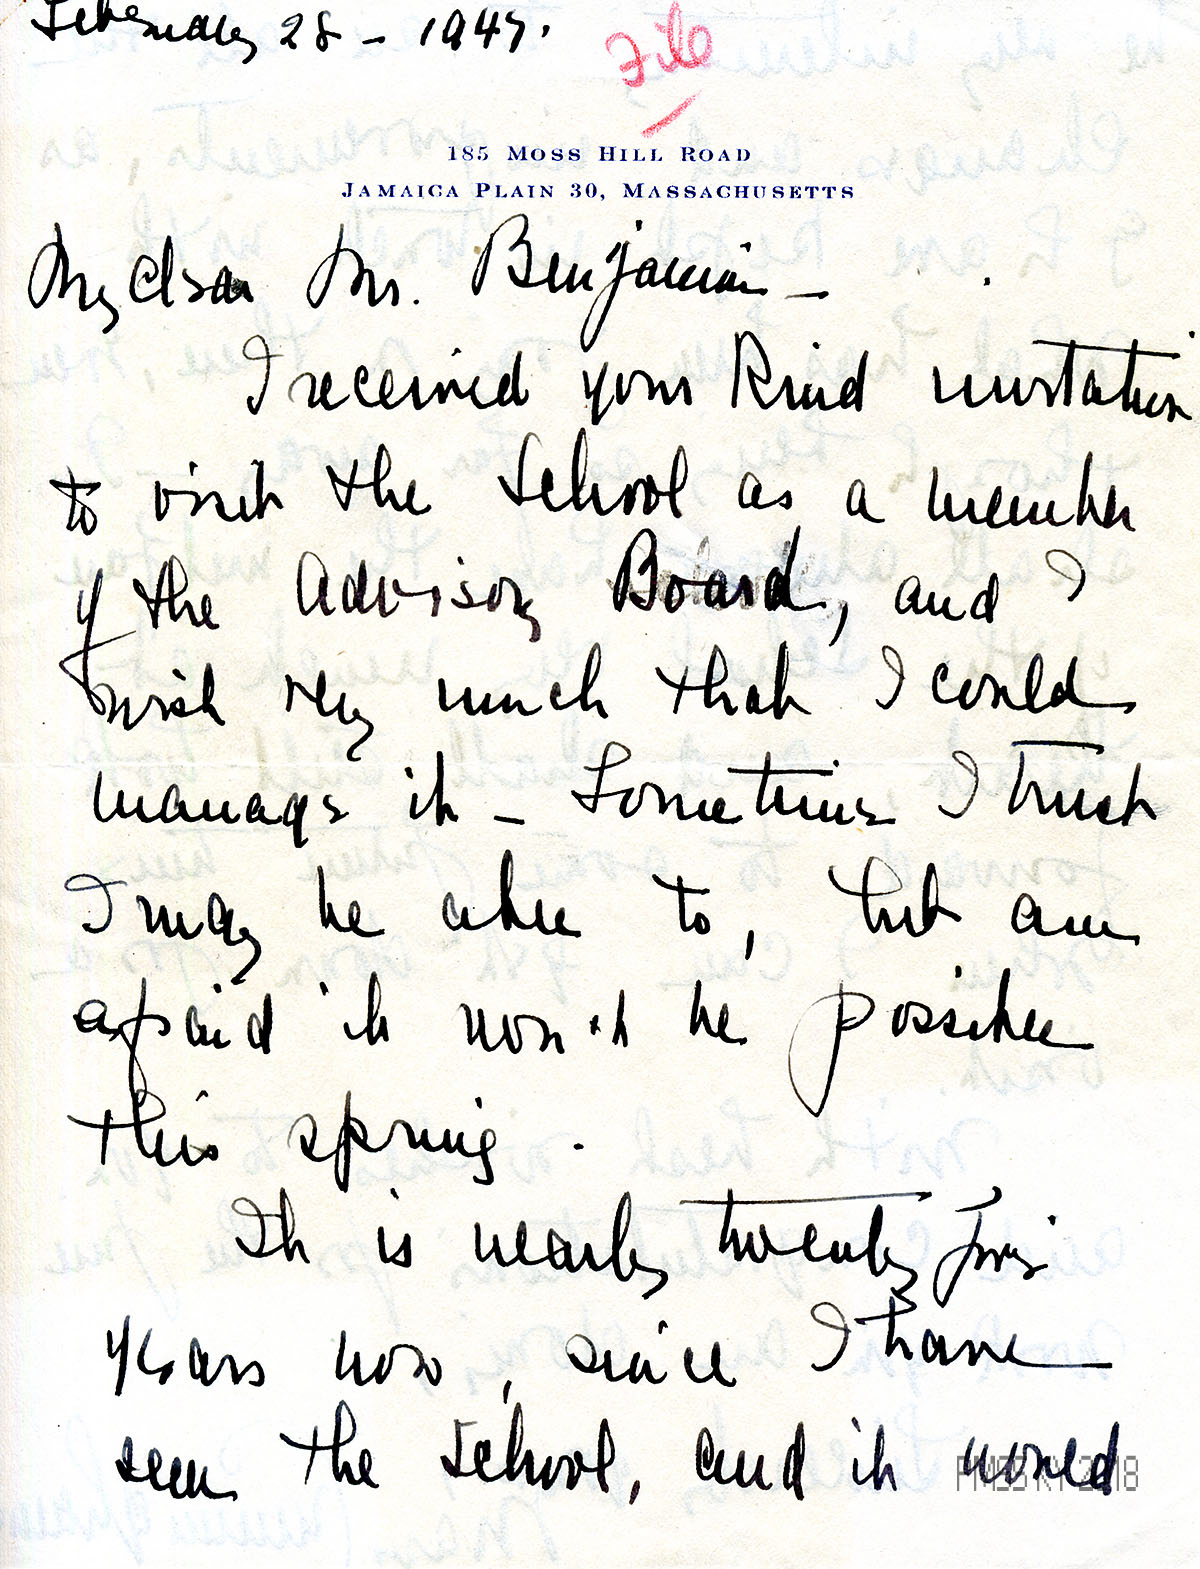 February 28 - 1947.
File
185 Moss Hill Road
Jamaica Plain 30, Massachusetts
My dear Mr. Benjamin -
I received your kind invitation
to visit the School as a member
of the Advisory Board, and I
wish very much that I could
manage it - Sometime I trust
I may be able to, but am
afraid it won't be possible
this spring.
It is nearly twenty five
years now, since I have
seen the School, and it would
PMSS KY 2018